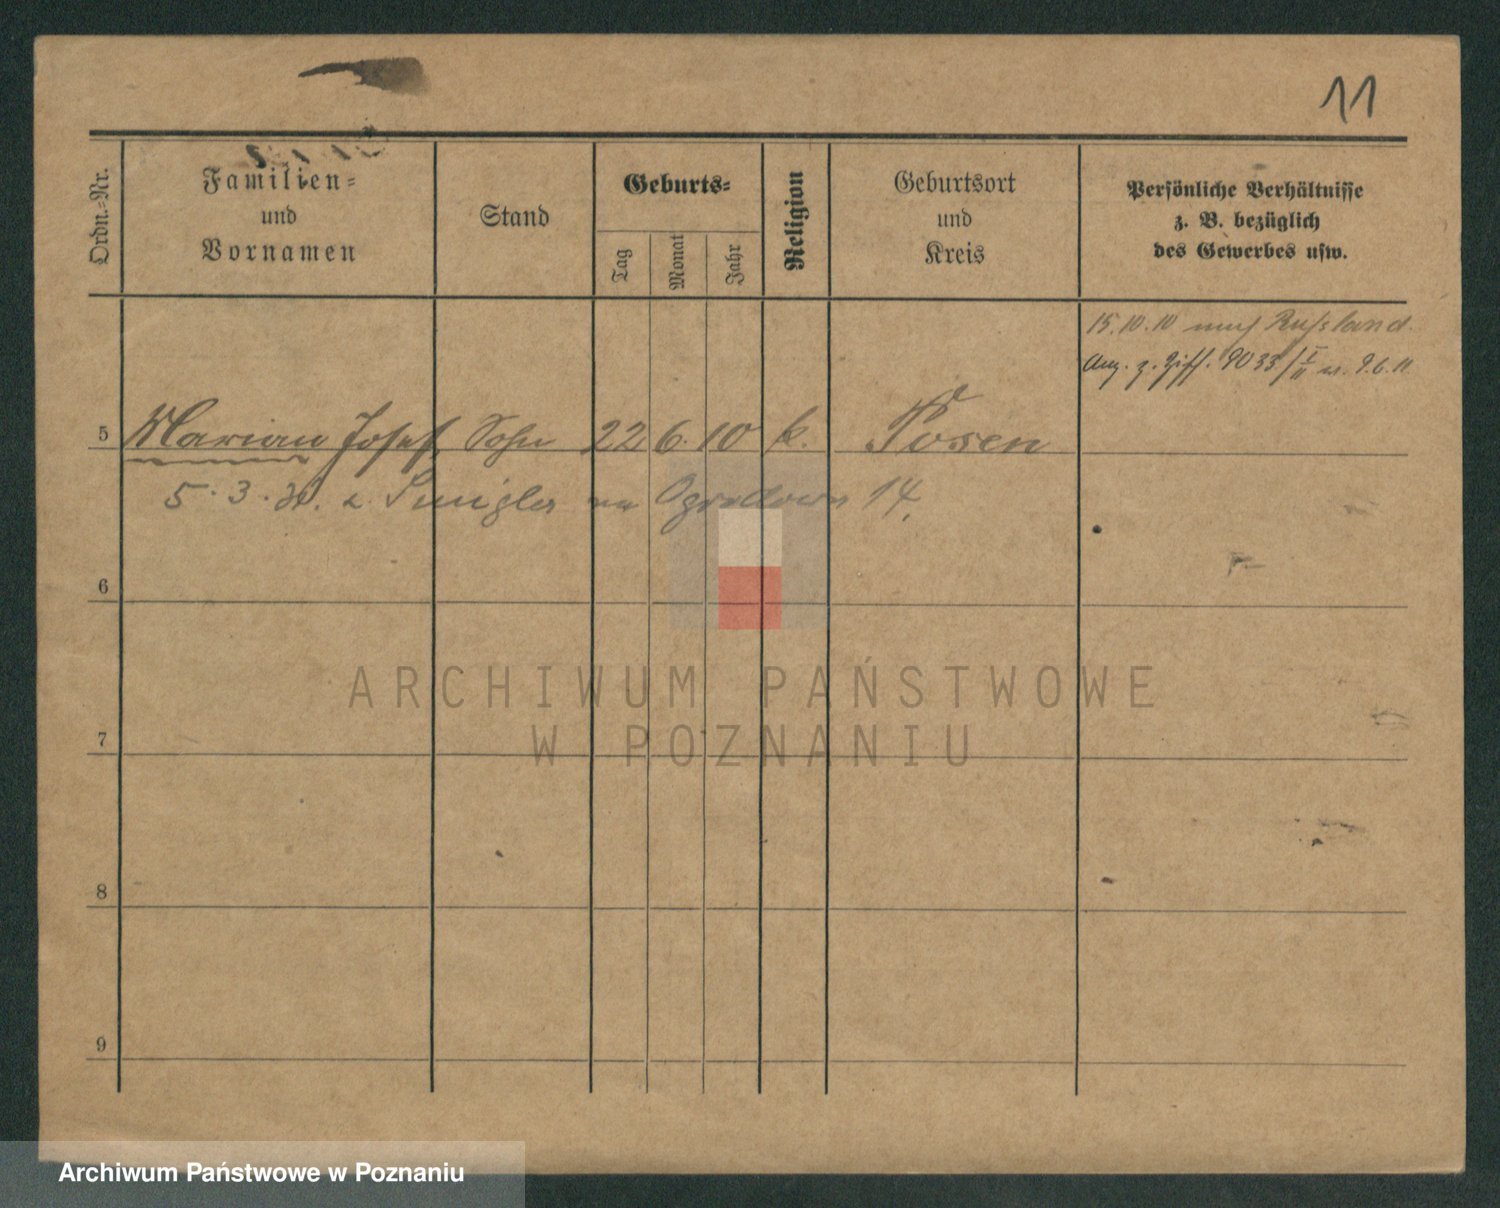 11
Ordn.-Nr.
Familien-
und
Vornamen
Stand
Geburts-
Tag
Monat
Jahr
Religion
Geburtsort
und
Kreis
Persönliche Verhältnisse
z. B. bezüglich
des Gewerbes usw.
15.10.10 nach Russland.
5 Marian Josef Sohn 22 6. 10 k. Posen
5. 3. z. na Ogrodowa 14.
6
7
8
9
ARCHIWUM PAŃSTWOWE
W POZNANIU
Archiwum Państwowe w Poznaniu